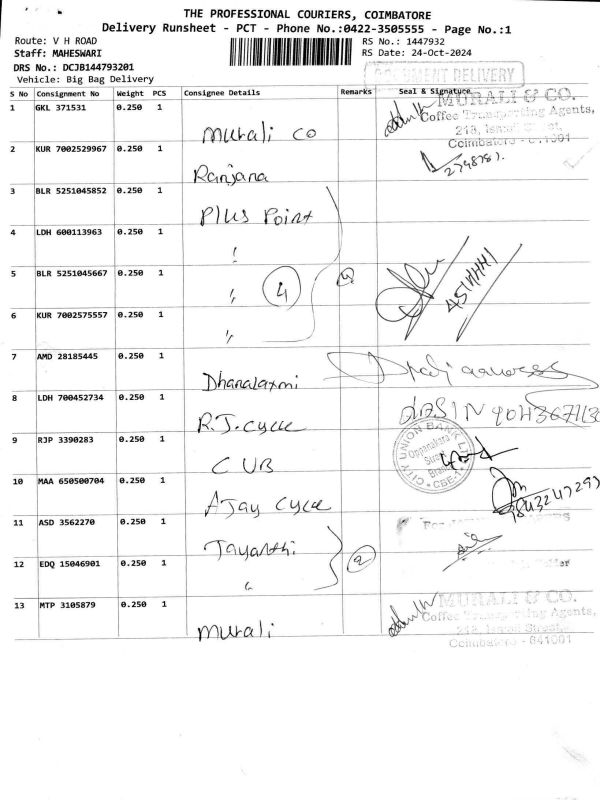 THE PROFESSIONAL COURIERS, COIMBATORE
Delivery Runsheet - PCT - Phone No.:0422-3505555 - Page No.:1
Route: V H ROAD
RS No.: 1447932
Staff: MAHESWARI
RS Date: 24-Oct-2024
DRS No.: DCJB144793201
DOCUMENT DELIVERY
Vehicle: Big Bag Delivery
S No Consignment No Weight PCS Consignee Details Remarks Seal & Signature
1 GKL 371531 0.250 1 Murali Co
MURALI & CO.
Coffee Transporting Agents,
Coimbatore - 641001
2 KUR 7002529967 0.250 1 Ranjana
3 BLR 5251045852 0.250 1 Plus Point
4 LDH 600113963 0.250 1 "
5 BLR 5251045667 0.250 1 " 4
6 KUR 7002575557 0.250 1 "
7 AMD 28185445 0.250 1 Dhanalaxmi
8 LDH 700452734 0.250 1 R.J. Cycle
9 RJP 3390283 0.250 1 CUB
CITY UNION BANK LTD
CBE-1
10 MAA 650500704 0.250 1 Ajay Cycle
11 ASD 3562270 0.250 1 Jayanthi
12 EDQ 15046901 0.250 1 " 2
13 MTP 3105879 0.250 1 Murali
MURALI & CO.
Coffee Transporting Agents,
Coimbatore - 641001